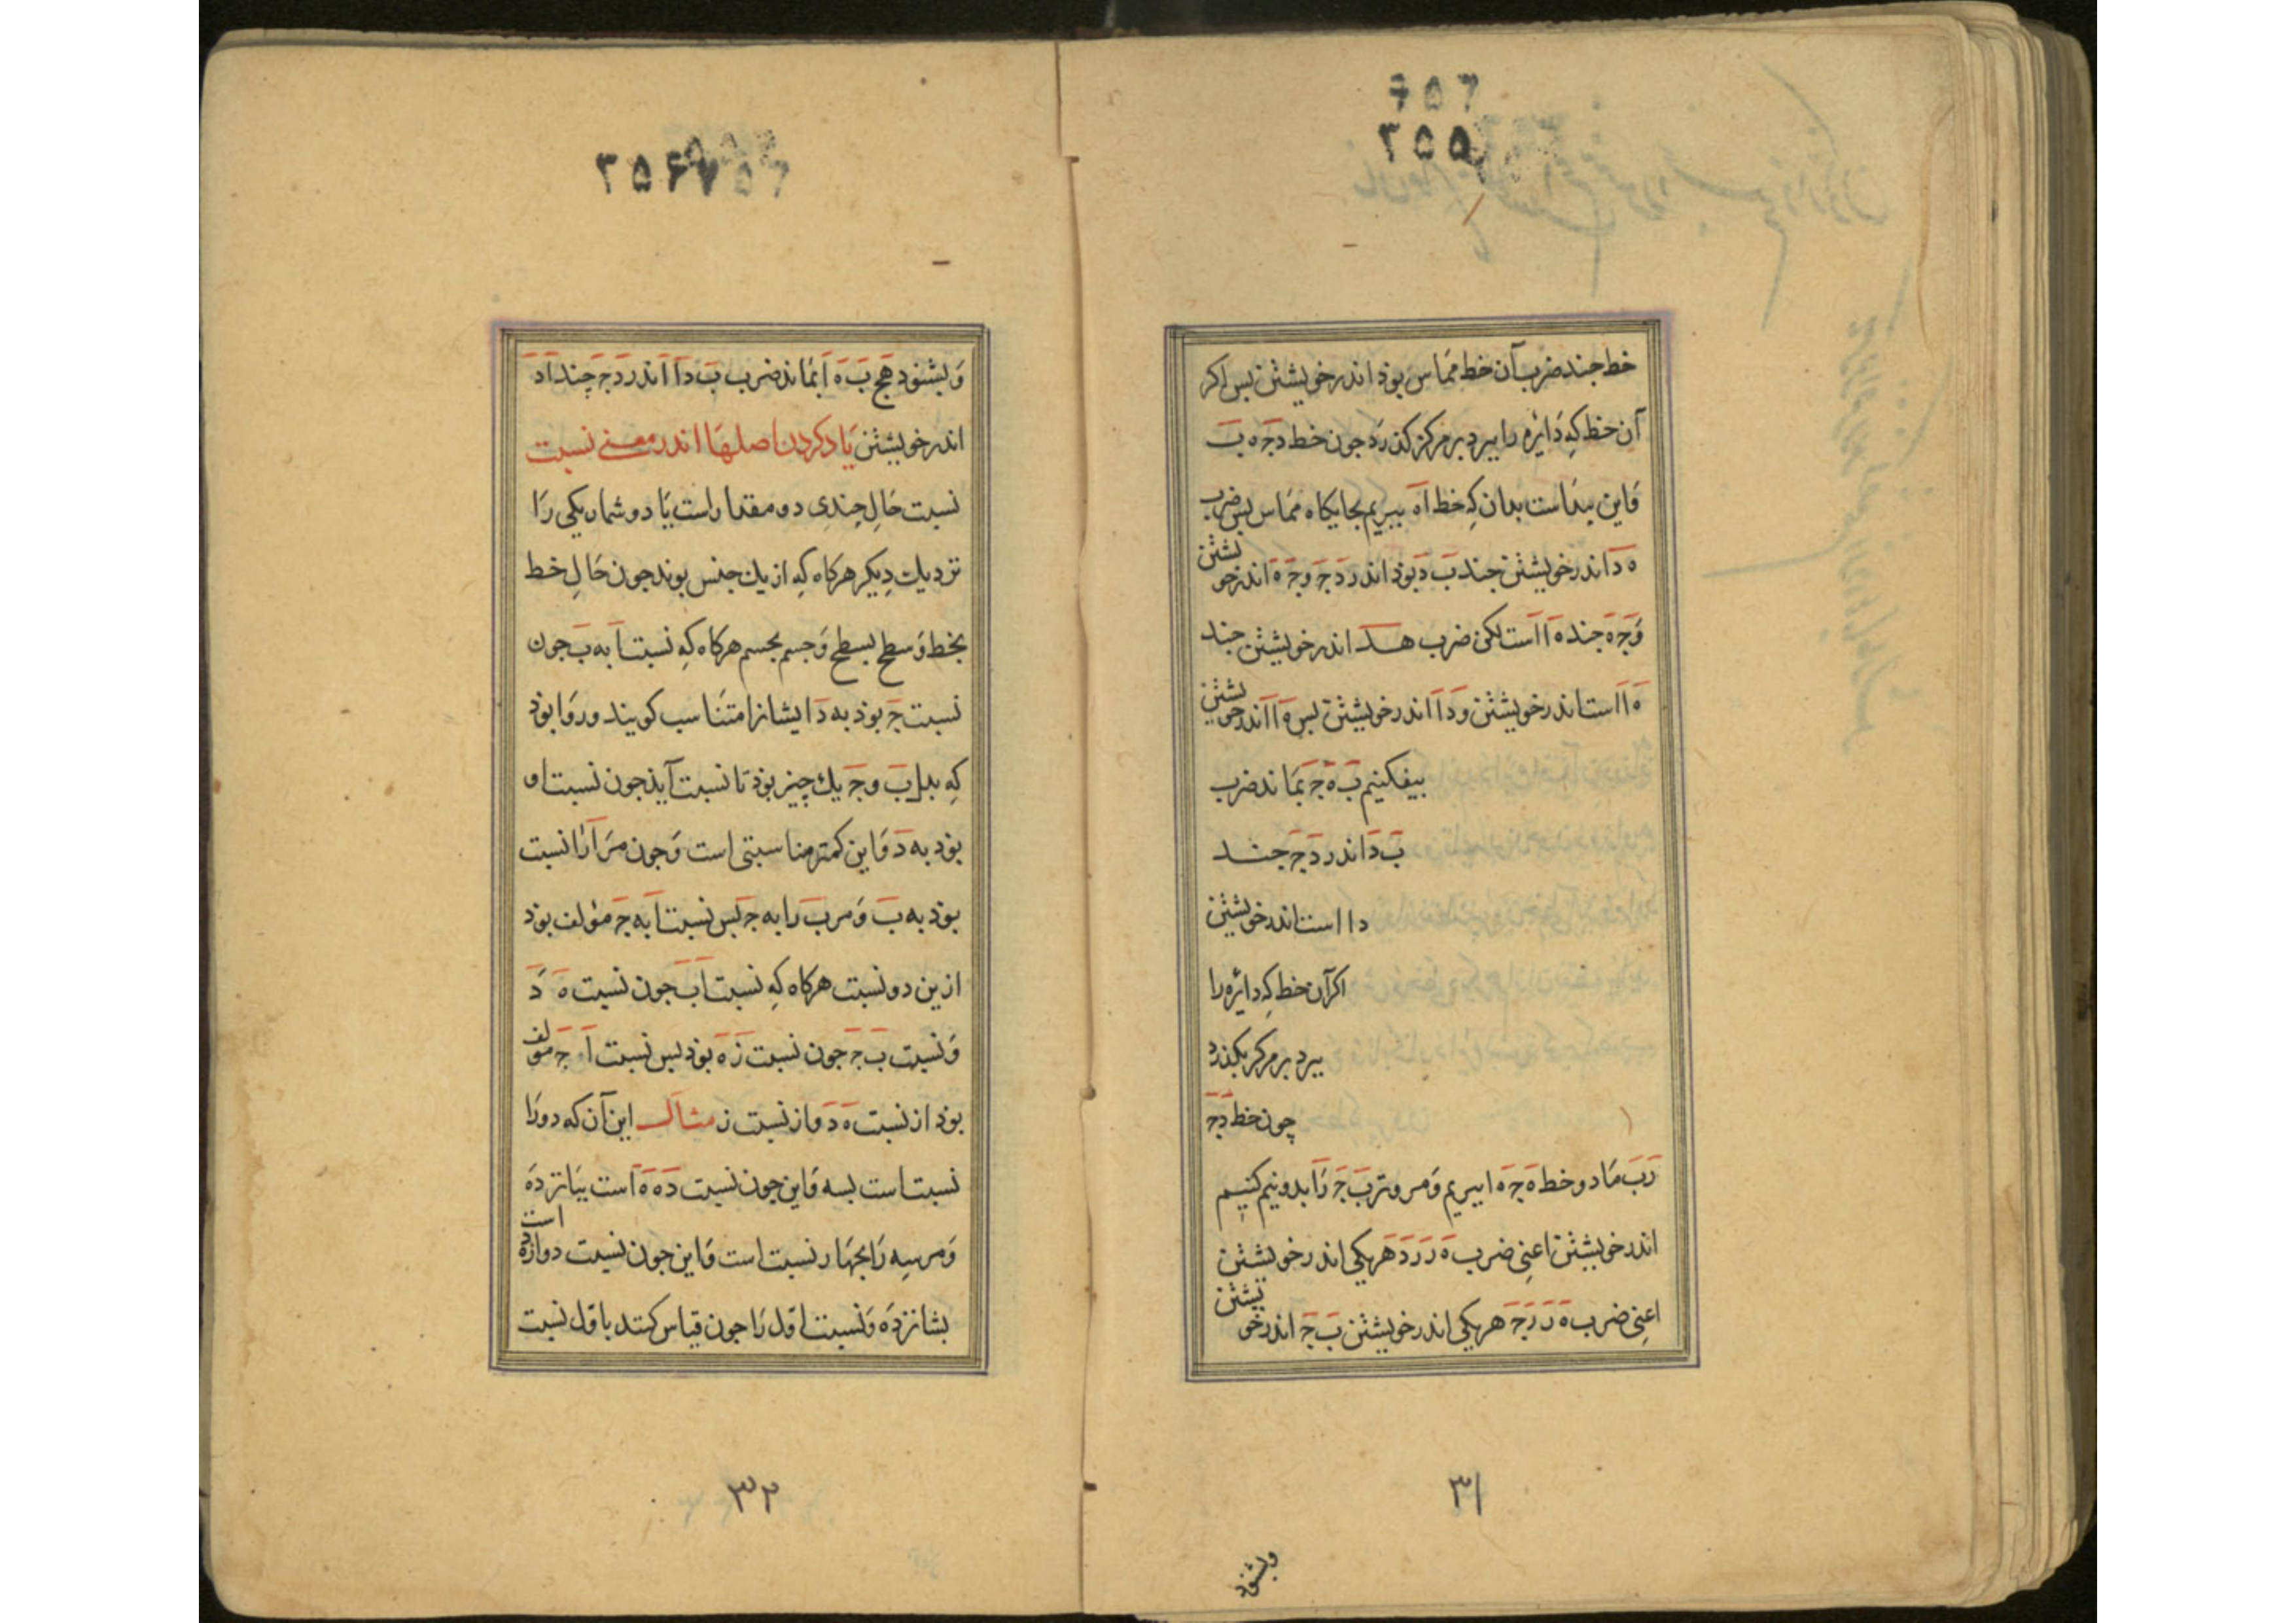 ۳۵۵
خط جند ضرب آن خط مماس بوذ اندر خویشتن بس اکر
آن خط کِه دایره را ببرد بر مرکز کذرد جون خط دجه ب
واین بیداست بدان کِه خط اه ببریم بجایکاه مماس بس ضرب
ه د اندر خویشتن جند ب د بوذ اندر د ج و ج ه اندر خویشتن
و ج ه جند ه ا است لکن ضرب هد اندر خویشتن جند
ه ا است اندر خویشتن و د ا اندر خویشتن بس ه ا اندر خویشتن
بیفکنیم ب ه ج بماند ضرب
ب د اندر د ج جند
دا است اندر خویشتن
اکر آن خط کِه دائره را
ببرد بر مرکز بکذرد
چون خط د ج
ر ب ما دو خط ه ج ه ا ببریم و مر وتر ب ج را بدو نیم کنیم
اندر خویشتن اعنی ضرب ه ر ر د هر یکی اندر خویشتن
اعنی ضرب ه ر ر ج هر یکی اندر خویشتن ب ج اندر خویشتن
۳۱
وبشنود
۳۵۶
وبشنود هج ب ه ا بماند ضرب ب د ا اندر د ج چند ا د
اندر خویشتن یاد کردن اصلها اندر معنی نسبت
نسبت حالِ چندِی دو مقدار است یا دو شمار یکی را
نزدیك دِیکر هرکاه کِه از یك جنس بوند جون حالِ خط
بخط و سطح بسطح و جسم بجسم هرکاه کِه نسبت ا به ب جون
نسبت ج بوذ به د ایشانرا متناسب کویند و روا بوذ
کِه بدل ب و ج یك چیز بوذ تا نسبت آیذ جون نسبت او
بوذ به د واین کمتر مناسبتی است و جون مر ا را نسبت
بوذ به ب و مر ب را به ج بس نسبت ا به ج مؤلف بوذ
ازین دو نسبت هرکاه کِه نسبت ا ب جون نسبت ه د
و نسبت ب ج جون نسبت ز ه بوذ بس نسبت ا ج مؤلف
بوذ از نسبت ه د و از نسبت ز مثال این آن که دو را
نسبت است بسه واین جون نسبت ده ه است ببانزده
و مر سه را بجهار نسبت است واین جون نسبت دوازده است
بشانزده و نسبت اول را جون قیاس کنند باول نسبت
۳۲